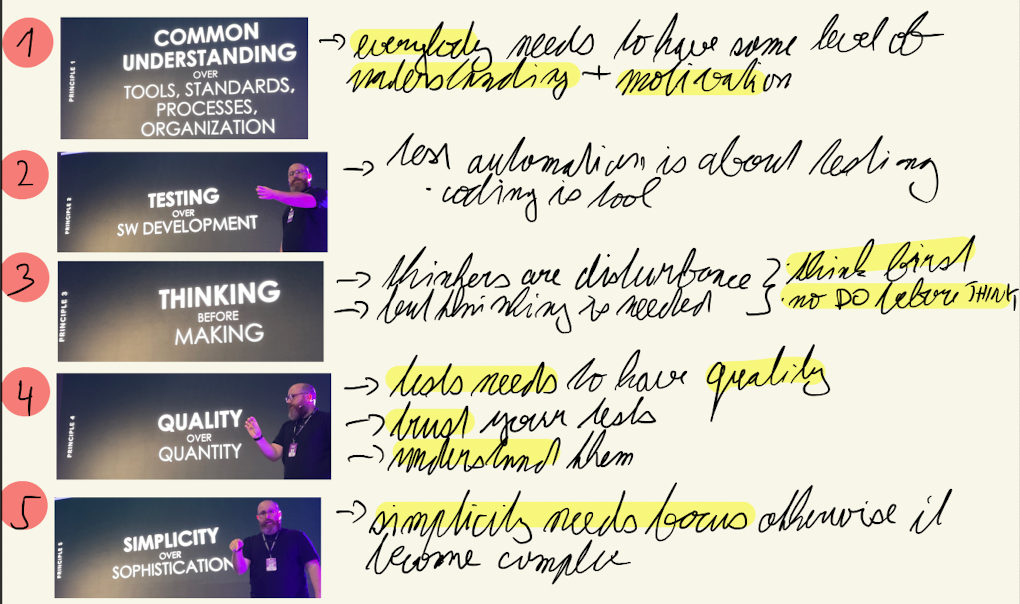 1
PRINCIPLE 1
COMMON
UNDERSTANDING
OVER
TOOLS, STANDARDS,
PROCESSES,
ORGANIZATION
→ everybody needs to have some level of
understanding + motivation
2
PRINCIPLE 2
TESTING
OVER
SW DEVELOPMENT
→ test automation is about testing
· coding is tool
3
PRINCIPLE 3
THINKING
BEFORE
MAKING
→ thinkers are disturbance
→ but thinking is needed
} · think first
· no DO before THINK
4
PRINCIPLE 4
QUALITY
OVER
QUANTITY
→ tests needs to have quality
→ trust your tests
→ understand them
5
PRINCIPLE 5
SIMPLICITY
OVER
SOPHISTICATION
→ simplicity needs focus otherwise it
become complex